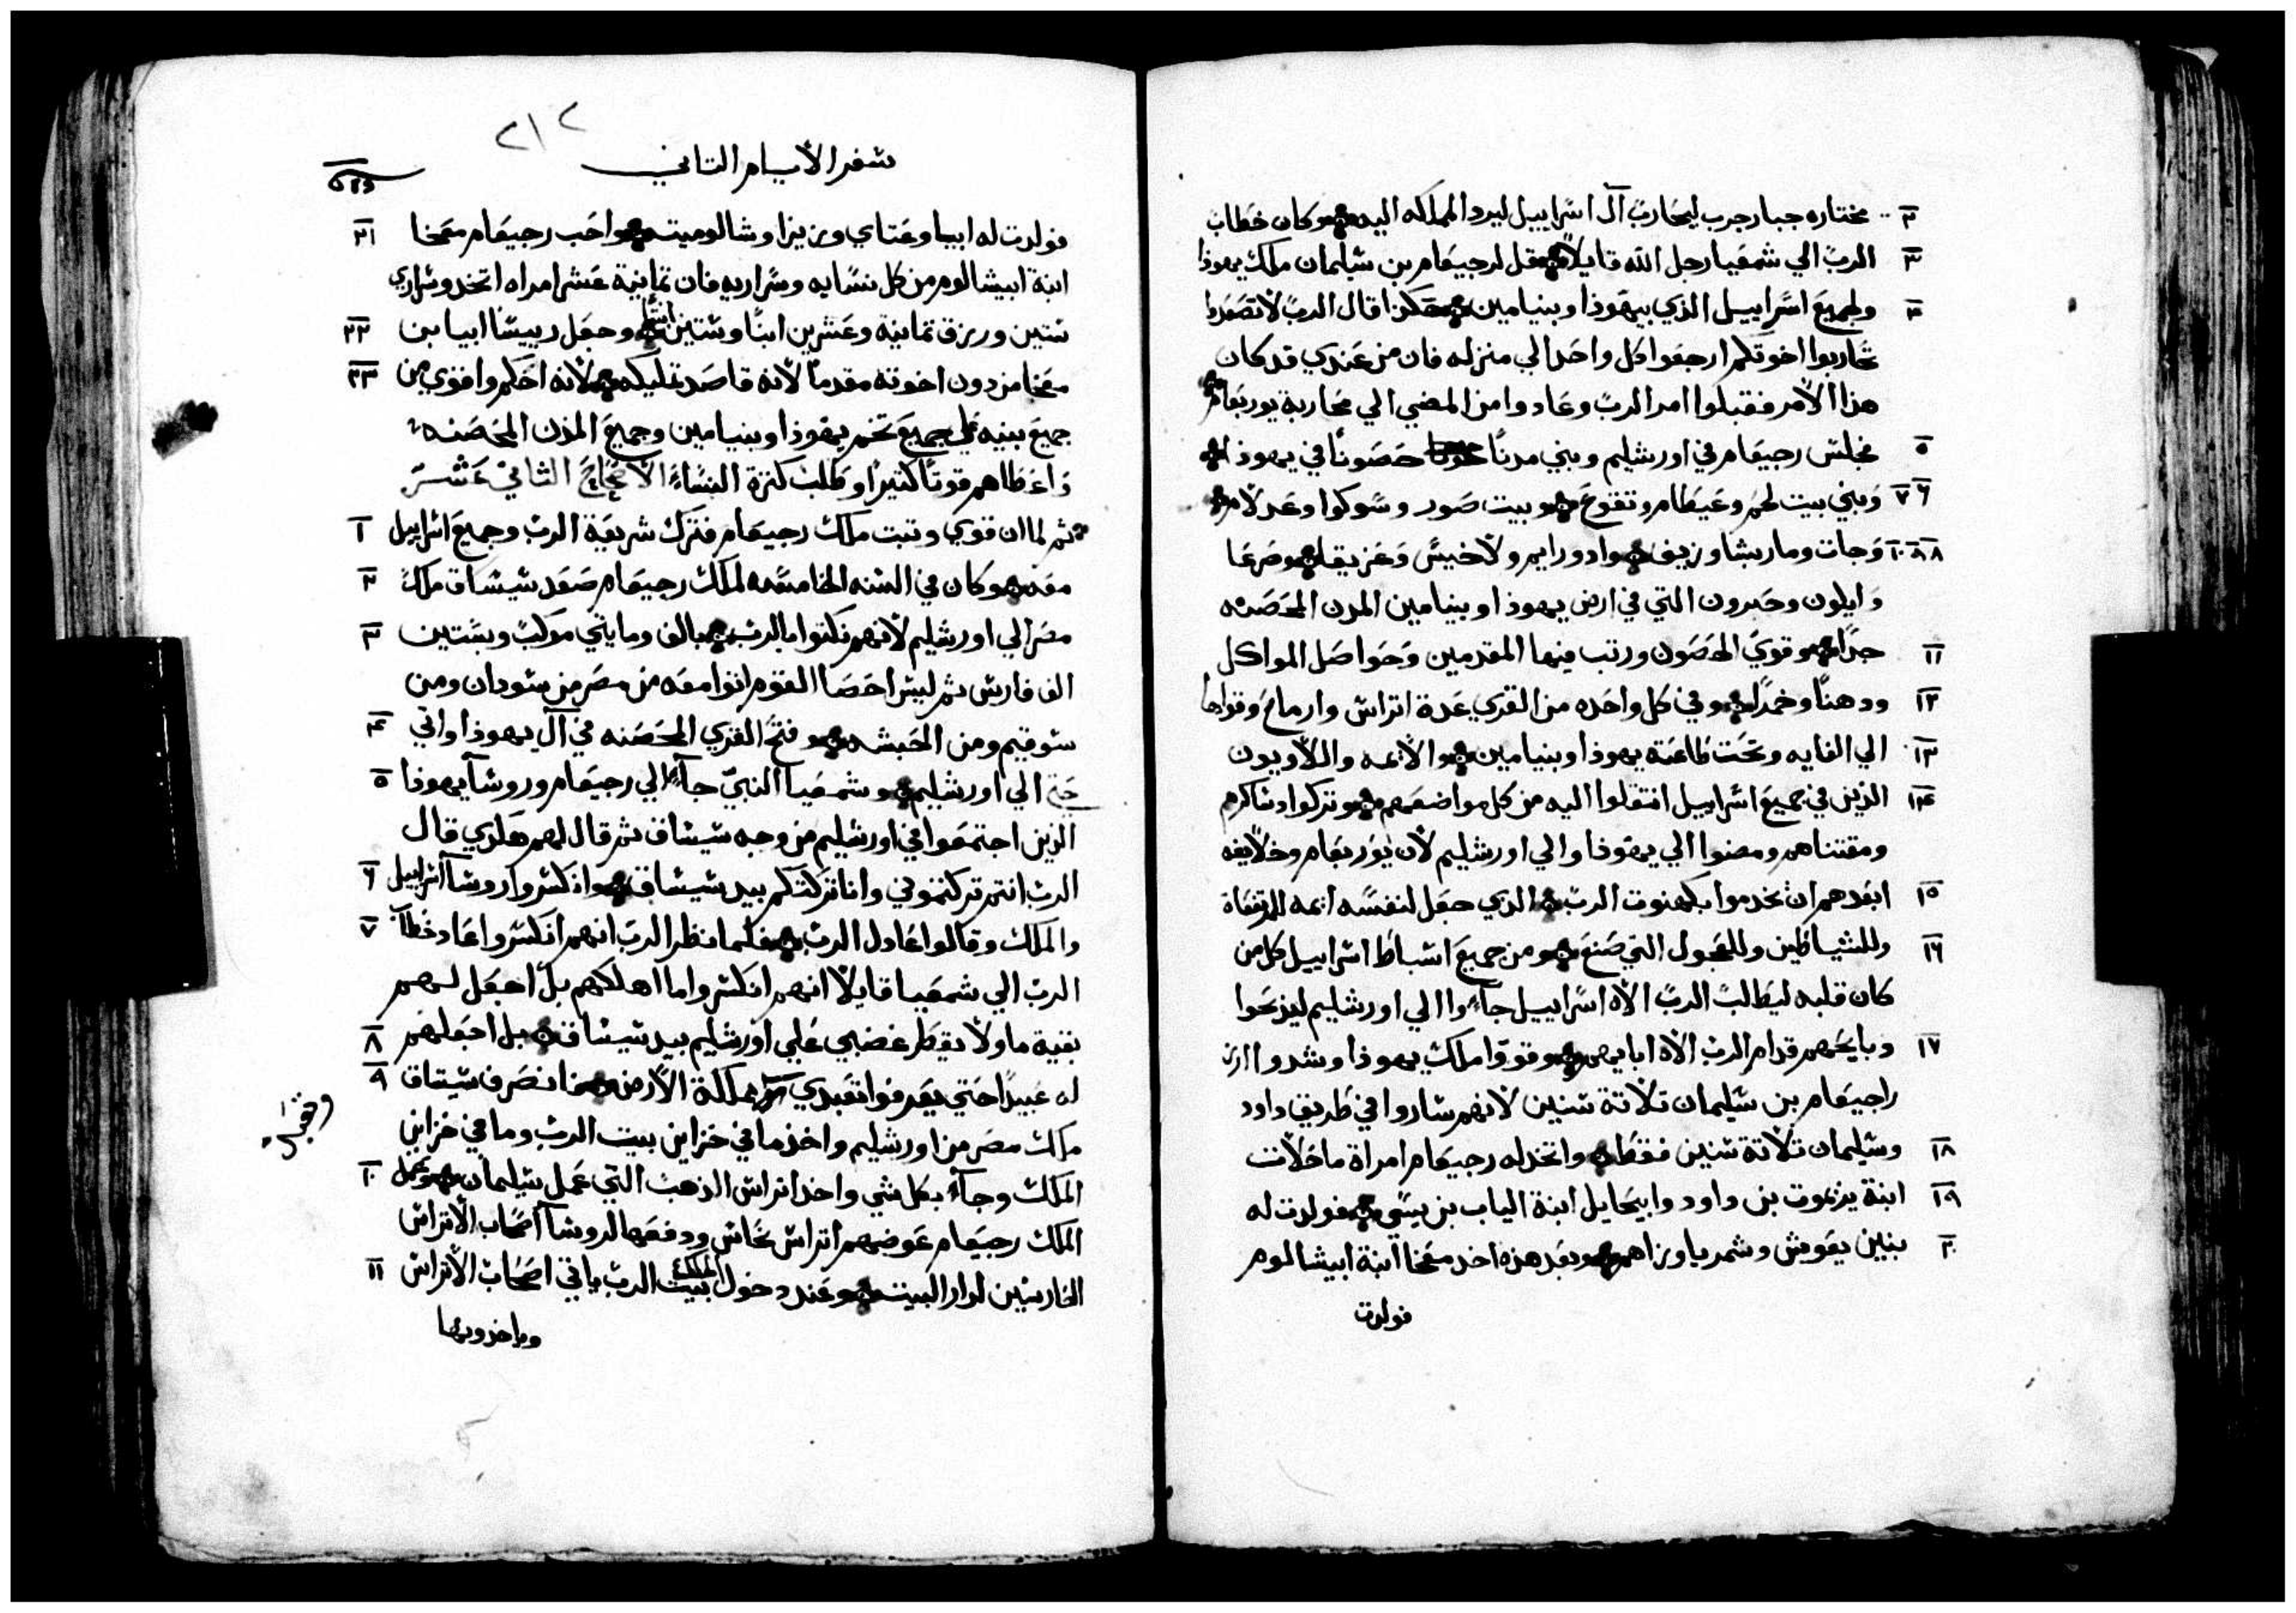 مختاره جبار حرب ليحارب آل اسراييل ليرد المملكه اليه وكان خطاب ٢
الرب الي شمعيا رجل الله قايلا قل لرجيعام بن سليمان ملك يهوذا ٣
ولجميع اسراييل الذي بيهوذا وبنيامين هكذا قال الرب لا تصعدوا ٤
تحاربوا اخوتكم ارجعوا كل واحد الي منزله فان من عندي قد كان
هذا الامر فقبلوا امر الرب وعادوا من المضي الي محاربة يوربعام
فجلس رجيعام في اورشليم وبني مدنا حصونا في يهوذا ٥
وبني بيت لحم وعيطام وتقوع وبيت صور وسوكوا وعدلام ٦ ٧
وجات وماريشا وزيف وادورايم ولاخيس وعزيقا وصرعا ٨ ٩ ١٠
وايلون وحبرون التي في ارض يهوذا وبنيامين المدن المحصنه
جدا وقوي الحصون ورتب فيها المقدمين وحواصل المواكل ١١
ودهنا وخمرا وفي كل واحده من القري عدة اتراس وارماح وقواها ١٢
الي الغايه وتحت طاعته يهوذا وبنيامين والايمه واللاويون ١٣
الذين في جميع اسراييل انتقلوا اليه من كل مواضعهم وتركوا دساكرهم ١٤
ومقتناهم ومضوا الي يهوذا والي اورشليم لان يوربعام وخلايفه
ابعدهم ان يخدموا بكهنوت الرب الذي جعل لنفسه ايمه للمرتفعاة ١٥
وللشياطين وللعجول التي صنع ومن جميع اسباط اسراييل كل من ١٦
كان قلبه ليطالب الرب الاه اسراييل جآءوا الي اورشليم ليذبحوا
ذبايحهم قدام الرب الاه ابايهم وقووا ملك يهوذا وشدوا ازر ١٧
راجيعام بن سليمان تلاتة سنين لانهم ساروا في طريق داود
وسليمان تلاتة سنين فقط واتخد له رجيعام امراة ماخلات ١٨
ابنة يرنموت بن داود وابيحايل ابنة الياب بن يسي فولدت له ١٩
بنين يعويش وشمريا وزاهم وبعد هذه اخد معخا ابنة ابيشالوم ٢٠
فولدت
٢١٢
سفر الأيام التاني
فولدت له ابيا وعتاي وزيزا وشالوميت واحب رجيعام معخا ٢١
ابنة ابيشالوم من كل نسايه وسراريه فان تمانية عشر امراه اتخد وسراري
ستين ورزق تمانية وعشرين ابنا وستين ابنه وجعل رييسا ابيا بن ٢٢
معخا من دون اخوته مقدما لانه قاصد تمليكه لانه احكم واقوي من ٢٣
جميع بنيه علي جميع تخم يهوذا وبنيامين وجميع المدن المحصنه
واعطاهم قوتا كتيرا وطلب كترة النساء الاصحاح الثاني عشر
ثم لما ان قوي وتبت ملك رجيعام فترك شريعة الرب وجميع اسراييل ١
معه وكان في السنه الخامسه لملك رجيعام صعد شيشاق ملك ٢
مصر الي اورشليم لانهم نكتوا بالرب بالف ومايتي موكب وبستين ٣
الف فارس تم ليس احصا القوم اتوا معه من مصر من سودان ومن
سوقيم ومن الحبشه وفتح القري المحصنه في آل يهوذا واتي ٤
حتي الي اورشليم وشمعيا النبي جآء الي رجيعام وروسآ يهوذا ٥
الذين اجتمعوا في اورشليم من وجه شيشاق تم قال لهم هكذي قال
الرب انتم تركتموني وانا تركتكم بيد شيشاق وانكسروا روسآ اسراييل ٦
والملك وقالوا عادل الرب فلما نظر الرب انهم انكسروا عاد خطاب ٧
الرب الي شمعيا قايلا انهم انكسروا ما اهلكهم بل اجعل لهم
بقية ما ولا يقطر غضبي علي اورشليم بيد شيشاق بل اجعلهم ٨
له عبيدا حتي يعرفوا تعبدي مملكة الارض فانصرف شيشاق ٩
ملك مصر من اورشليم واخذ ما في خزاين بيت الرب وما في خزاين
الملك وجآء بكل شي واخذ اتراس الذهب التي عمل سليمان وعمل ١٠
الملك رجيعام عوضهم اتراس نحاس ودفعها لروسآ اصحاب الاتراس
الحارسين لدار البيت وعند دخول الملك بيت الرب ياتي اصحاب الاتراس ١١
وياخدونها